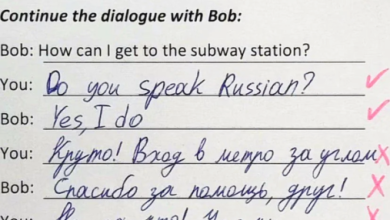 Continue the dialogue with Bob:
Bob: How can I get to the subway station?
You: Do you speak Russian?
Bob: Yes, I do
You: Круто! Вход в метро за углом
Bob: Спасибо за помощь, друг!
You: